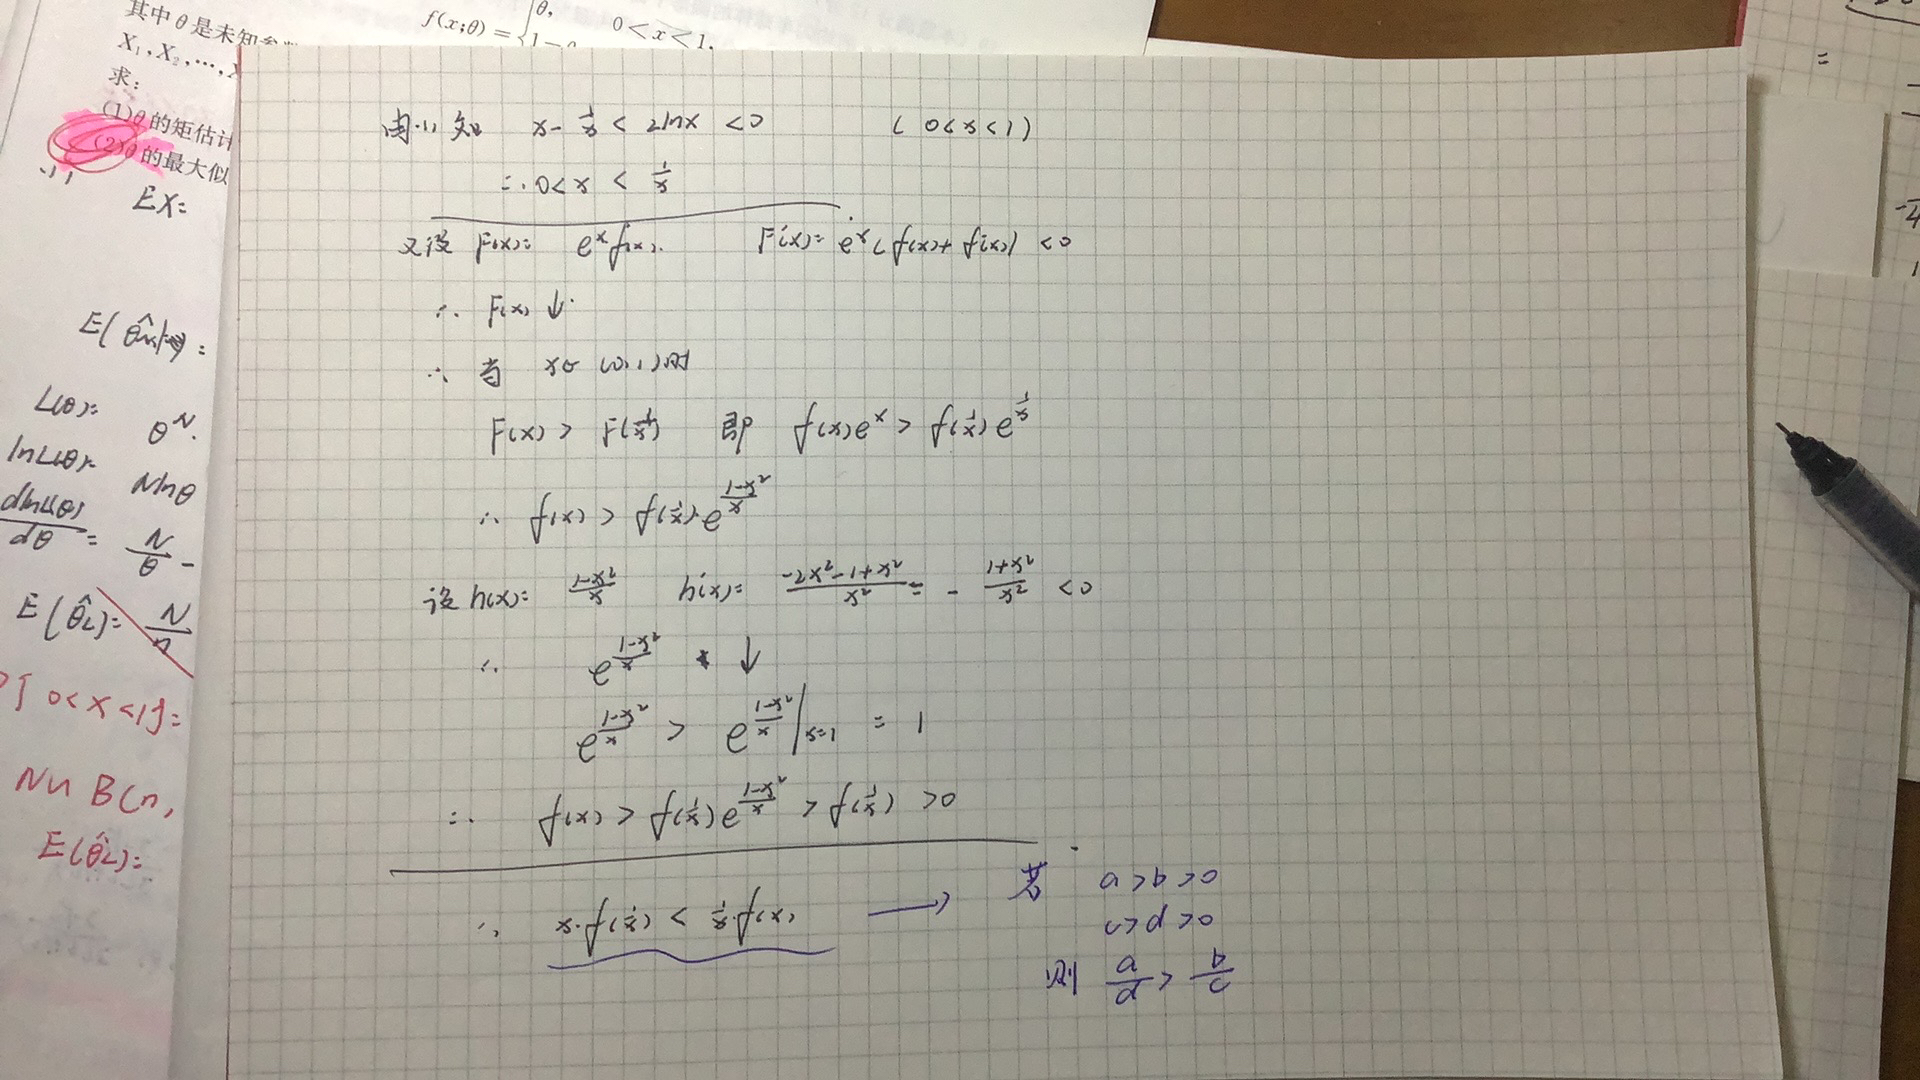 其中θ是未知参数
f(x;θ)= θ, 0<x<1,
X₁,X₂,…,X
求:
(1)θ的矩估计
(2)θ的最大似
(1)
EX=
L(θ)= θ^N.
lnL(θ)= Nlnθ
dlnL(θ)/dθ = N/θ -
E(θ̂L)= N/n
{0<X<1}=
N~B(n,
E(θ̂L)=
由(1)知 x-1/x < 2lnx <0 (0<x<1)
∴0<x < 1/x
又设 F(x)= e^x f(x). F'(x)= e^x(f(x)+f'(x)) <0
∴ F(x)↓.
∴ 当 x∈(0,1)时
F(x) > F(1/x) 即 f(x)e^x > f(1/x)e^(1/x)
∴ f(x) > f(1/x)·e^((1-x²)/x)
设h(x)= (1-x²)/x h'(x)= (-2x²-1+x²)/x² = - (1+x²)/x² <0
∴ e^((1-x²)/x) ↓
e^((1-x²)/x) > e^((1-x²)/x)|x=1 = 1
∴ f(x) > f(1/x)e^((1-x²)/x) > f(1/x) >0
∴ x·f(1/x) < 1/x·f(x) → 若 a>b>0
c>d>0
则 a/d > b/c